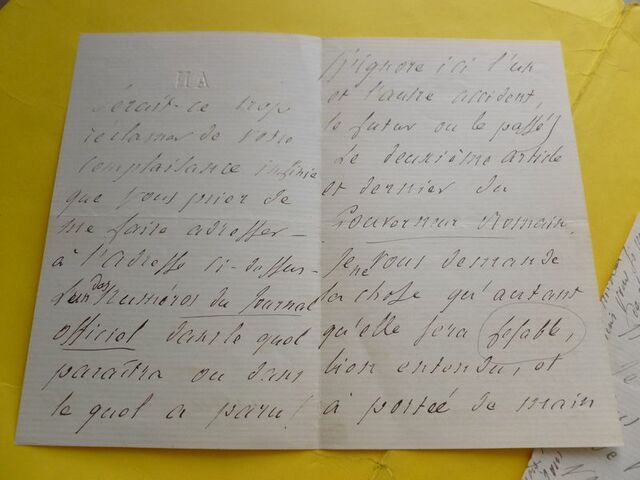 AH
Serait-ce trop
réclamer de votre
complaisance infinie
que vous prier de
me faire adresser —
à l'adresse ci-dessus —
l'un des Numéros du Journal
officiel dans le quel
paraîtra ou dans
le quel a paru (
J'ignore ici l'un
et l'autre accident,
le futur ou le passé)
Le deuxième article
et dernier du
Gouverneur Romain.
Je ne vous demande
la chose qu'autant
qu'elle sera fesable,
bien entendu, et
à portée de main